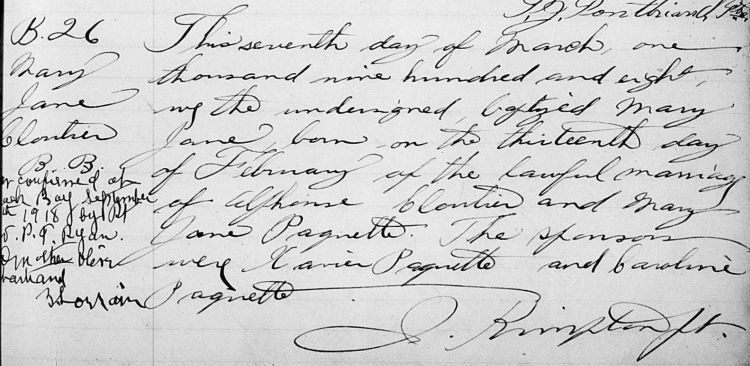 B. 26
Mary
Jane
Cloutier
B. B.
confirmed at
Bay September
1918 by Rt
P. T. Ryan.
This seventh day of March, one
thousand nine hundred and eight,
we the undersigned, baptized Mary
Jane born on the thirteenth day
of February of the lawful marriage
of Alphonse Cloutier and Mary
Jane Paquette. The sponsors
were Xavier Paquette and Caroline
Paquette
J. Kimpton